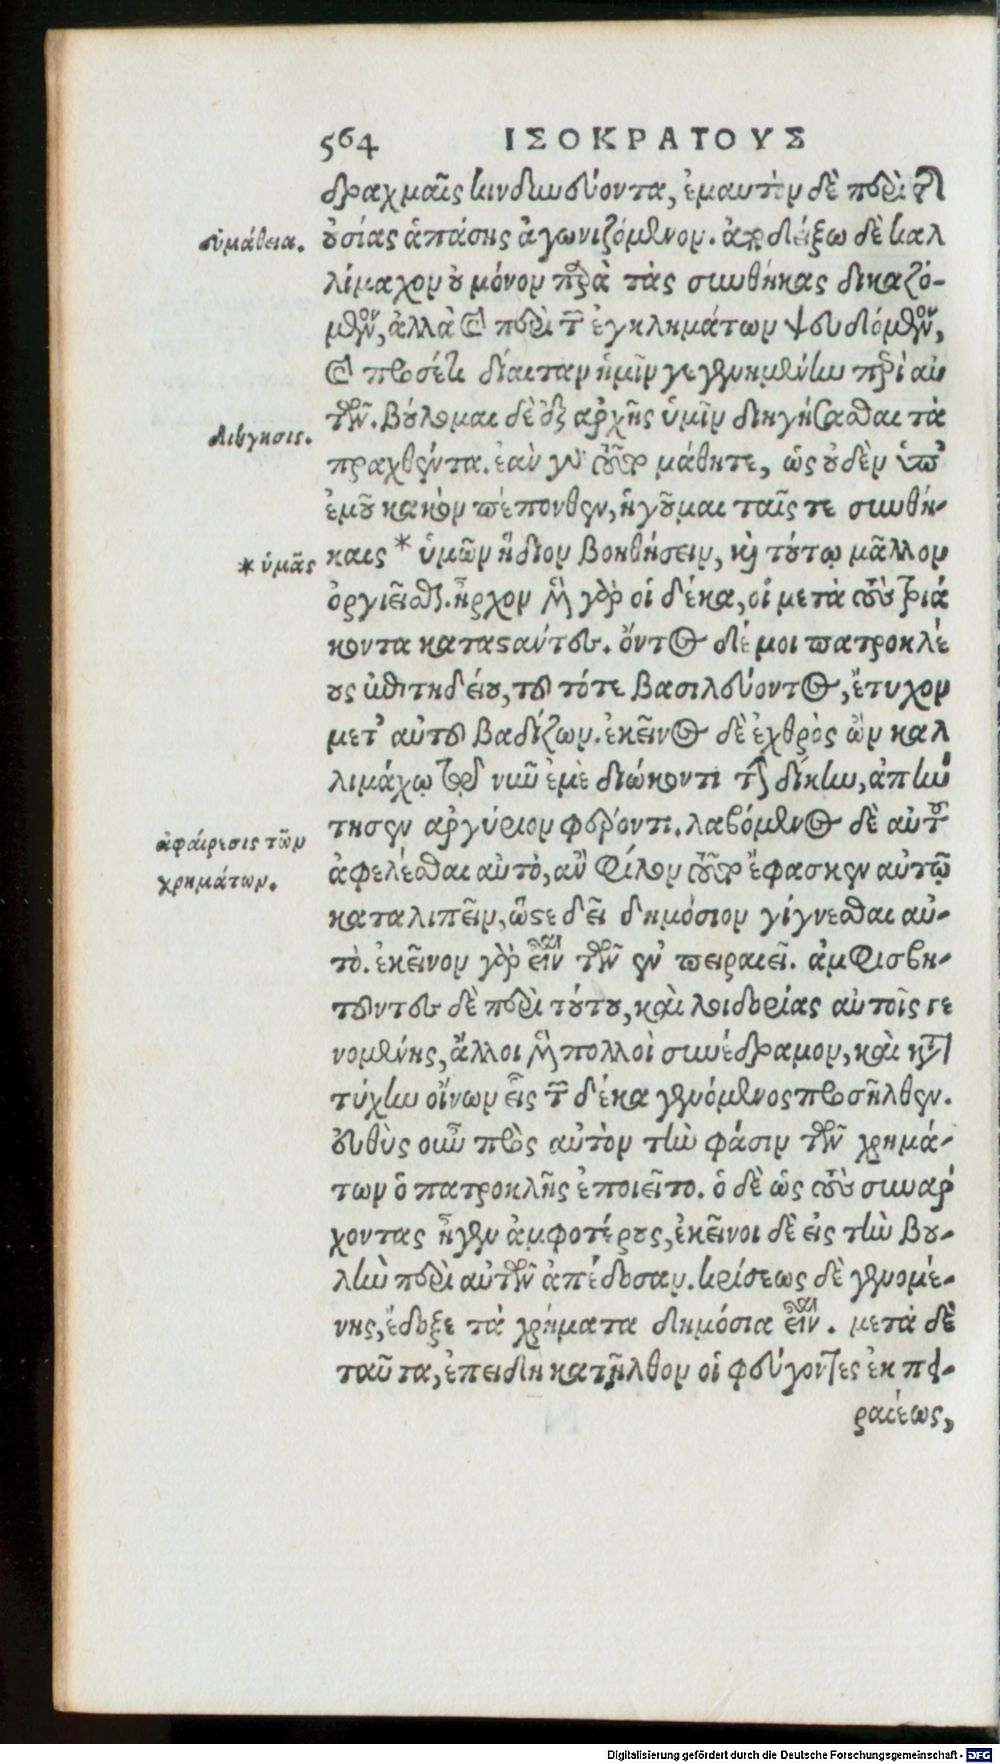 564 ΙΣΟΚΡΑΤΟΥΣ
δραχμαῖς κινδυνεύοντα, ἐμαυτὸν δὲ περὶ τῆς
εὐμάθεια. οὐσίας ἁπάσης ἀγωνιζόμενον. ἀποδείξω δὲ καλ
λίμαχον οὐ μόνον παρὰ τὰς συνθήκας δικαζό-
μενον, ἀλλὰ καὶ περὶ τῶν ἐγκλημάτων ψευδόμενον,
καὶ προσέτι δίαιταν ἡμῖν γεγενημένην περὶ αὐ
διήγησις. τῶν. βούλομαι δὲ ἐξ ἀρχῆς ὑμῖν διηγήσασθαι τὰ
πραχθέντα. ἐὰν γὰρ τοῦτο μάθητε, ὡς οὐδὲν ὑπ'
ἐμοῦ κακὸν πέπονθεν, ἡγοῦμαι ταῖς τε συνθή-
* ὑμᾶς καις * ὑμῶν ἥδιον βοηθήσειν, καὶ τούτῳ μᾶλλον
ὀργιεῖσθαι. ἦρχον μὲν γὰρ οἱ δέκα, οἱ μετὰ τοὺς τριά
κοντα καταστάντες. ὄντος δέ μοι πατροκλέ
ους ἐπιτηδείου, τοῦ τότε βασιλεύοντος, ἔτυχον
μετ' αὐτοῦ βαδίζων. ἐκεῖνος δὲ ἐχθρὸς ὢν καλ
λιμάχῳ τῷ νῦν ἐμὲ διώκοντι τὴν δίκην, ἀπήν
τησεν ἀργύριον φέροντι. λαβόμενος δὲ αὐτοῦ
ἀφαίρεσις τῶν ἀφελέσθαι αὐτὸ, ἂν φίλον τοῦτο ἔφασκεν αὐτῷ
χρημάτων. καταλιπεῖν, ὥστε δεῖ δημόσιον γίγνεσθαι αὐ-
τὸ. ἐκεῖνον γὰρ εἶναι τῶν ἐν πειραιεῖ. ἀμφισβη-
τούντων δὲ περὶ τούτου, καὶ λοιδορίας αὐτοῖς γε
νομένης, ἄλλοι μὲν πολλοὶ συνέδραμον, καὶ κατὰ
τύχην οἴνων εἷς τῶν δέκα γενόμενος προσῆλθεν.
εὐθὺς οὖν πρὸς αὐτὸν τὴν φάσιν τῶν χρημά-
των ὁ πατροκλῆς ἐποιεῖτο. ὁ δὲ ὡς τοὺς συναρ
χοντας ἦγεν ἀμφοτέρους, ἐκεῖνοι δὲ εἰς τὴν βου-
λὴν περὶ αὐτῶν ἀπέδοσαν. κρίσεως δὲ γενομέ-
νης, ἔδοξε τὰ χρήματα δημόσια εἶναι. μετὰ δὲ
ταῦτα, ἐπειδὴ κατῆλθον οἱ φεύγοντες ἐκ πει-
ραιέως,
Digitalisierung gefördert durch die Deutsche Forschungsgemeinschaft - DFG